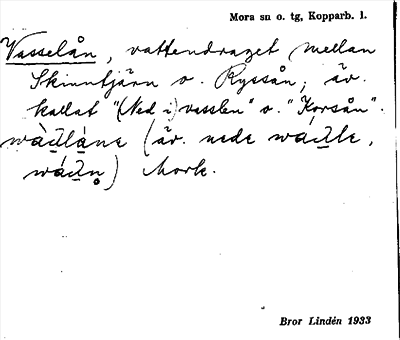 Mora sn o. tg, Kopparb. l.
Vasselån, vattendraget mellan
Skinntjärn o. Ryssån; äv.
kallat "(Ned i) vasslen" o. "Korsån".
(äv. nede
Mork.
Bror Lindén 1933